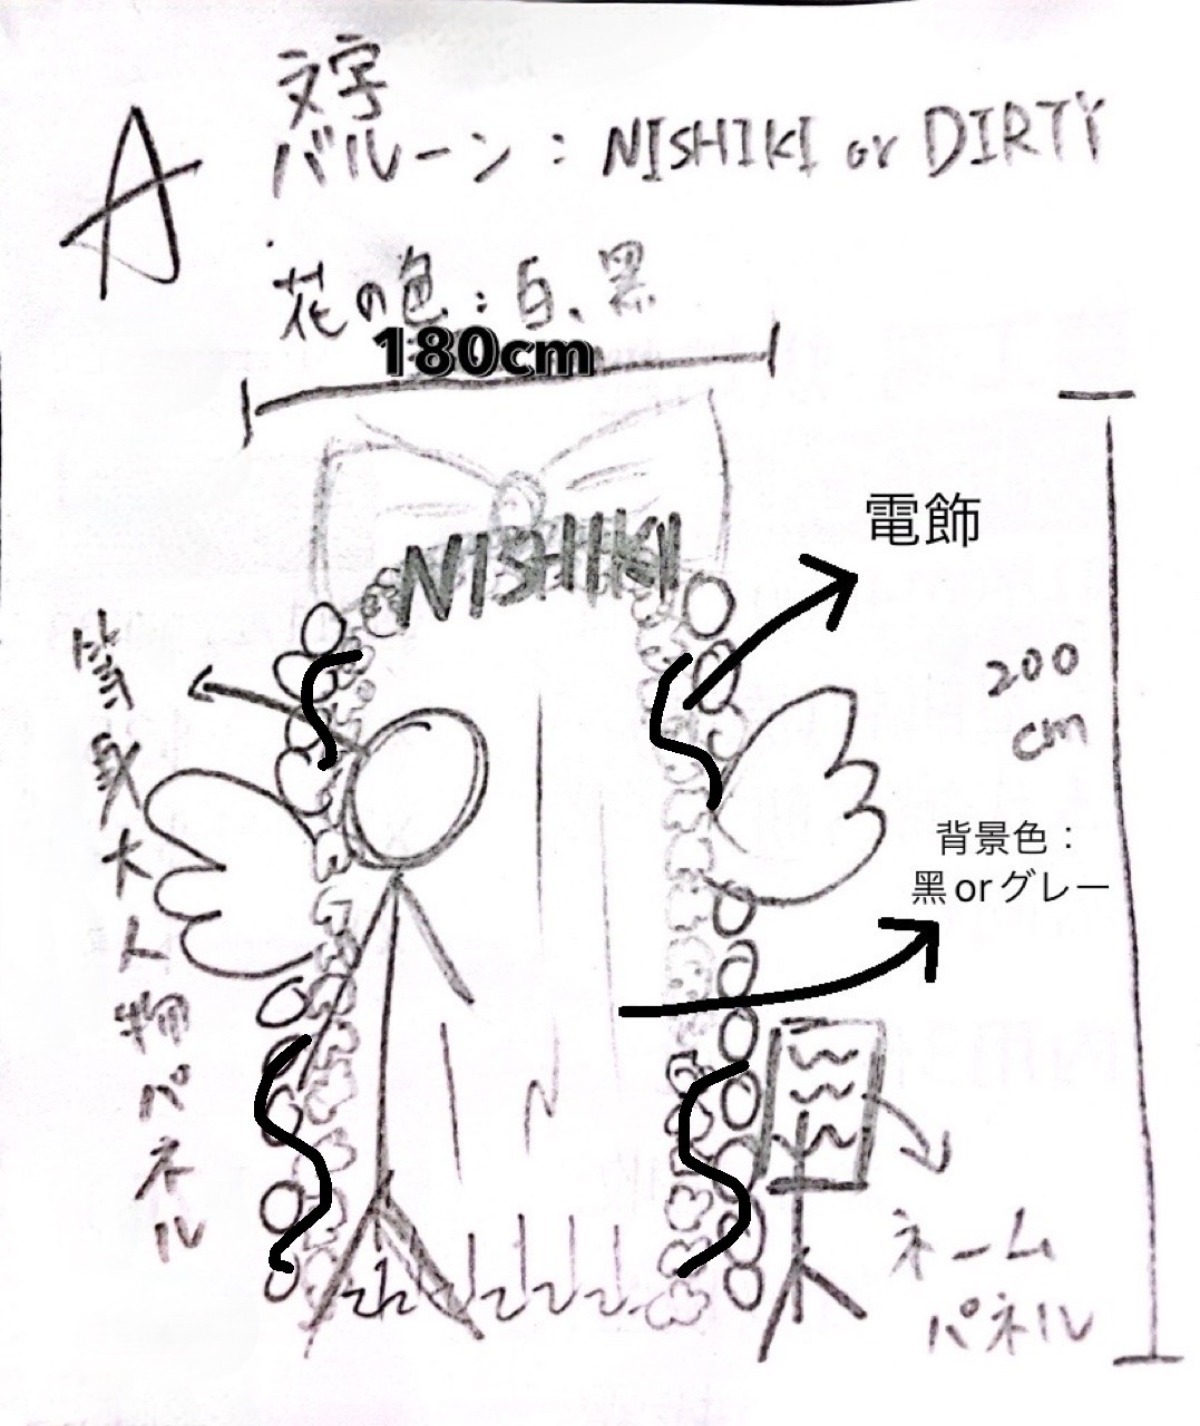 A
文字
バルーン：NISHIKI or DIRTY
花の色：白、黒
180cm
NISHIKI
電飾
等身大人物パネル
200
cm
背景色：
黒orグレー
ネーム
パネル